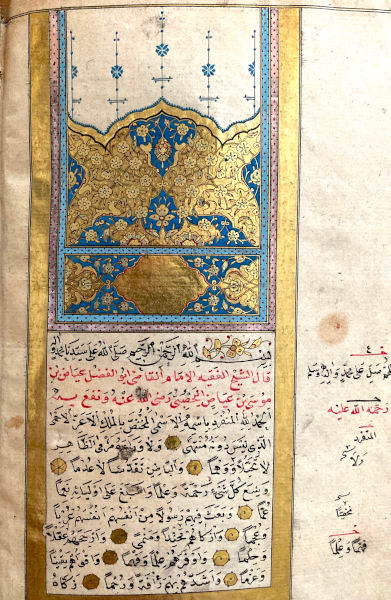 بسم الله الرحمن الرحيم صلى الله على سيدنا محمد و
قال الشيخ الفقيه الامام القاضى ابو الفضل عياض بن
موسى بن عياض اليحصبى رضى الله عنه ونفع به
الحمد لله المنفرد باسمه الاسمى المختص بالملك الاعز الاحمى
الذى ليس دونه منتهى ولا وراءه مرمى الظاهر
لا تخيلا ووهما والباطن تقدسا لا عدما
وسع كل شىء رحمة وعلما واسبغ على اوليائه نعما
عما وبعث فيهم رسولا من انفسهم انفسهم عربا
وعجما وازكاهم محتدا ومنمى وارجحهم عقلا
وحلما واوفرهم علما وفهما واقواهم يقينا
وعزما واشدهم بهم رأفة ورحما زكاه
رحمه الله عليه
المنفرد
ولا
محتدا
فهما وعلما